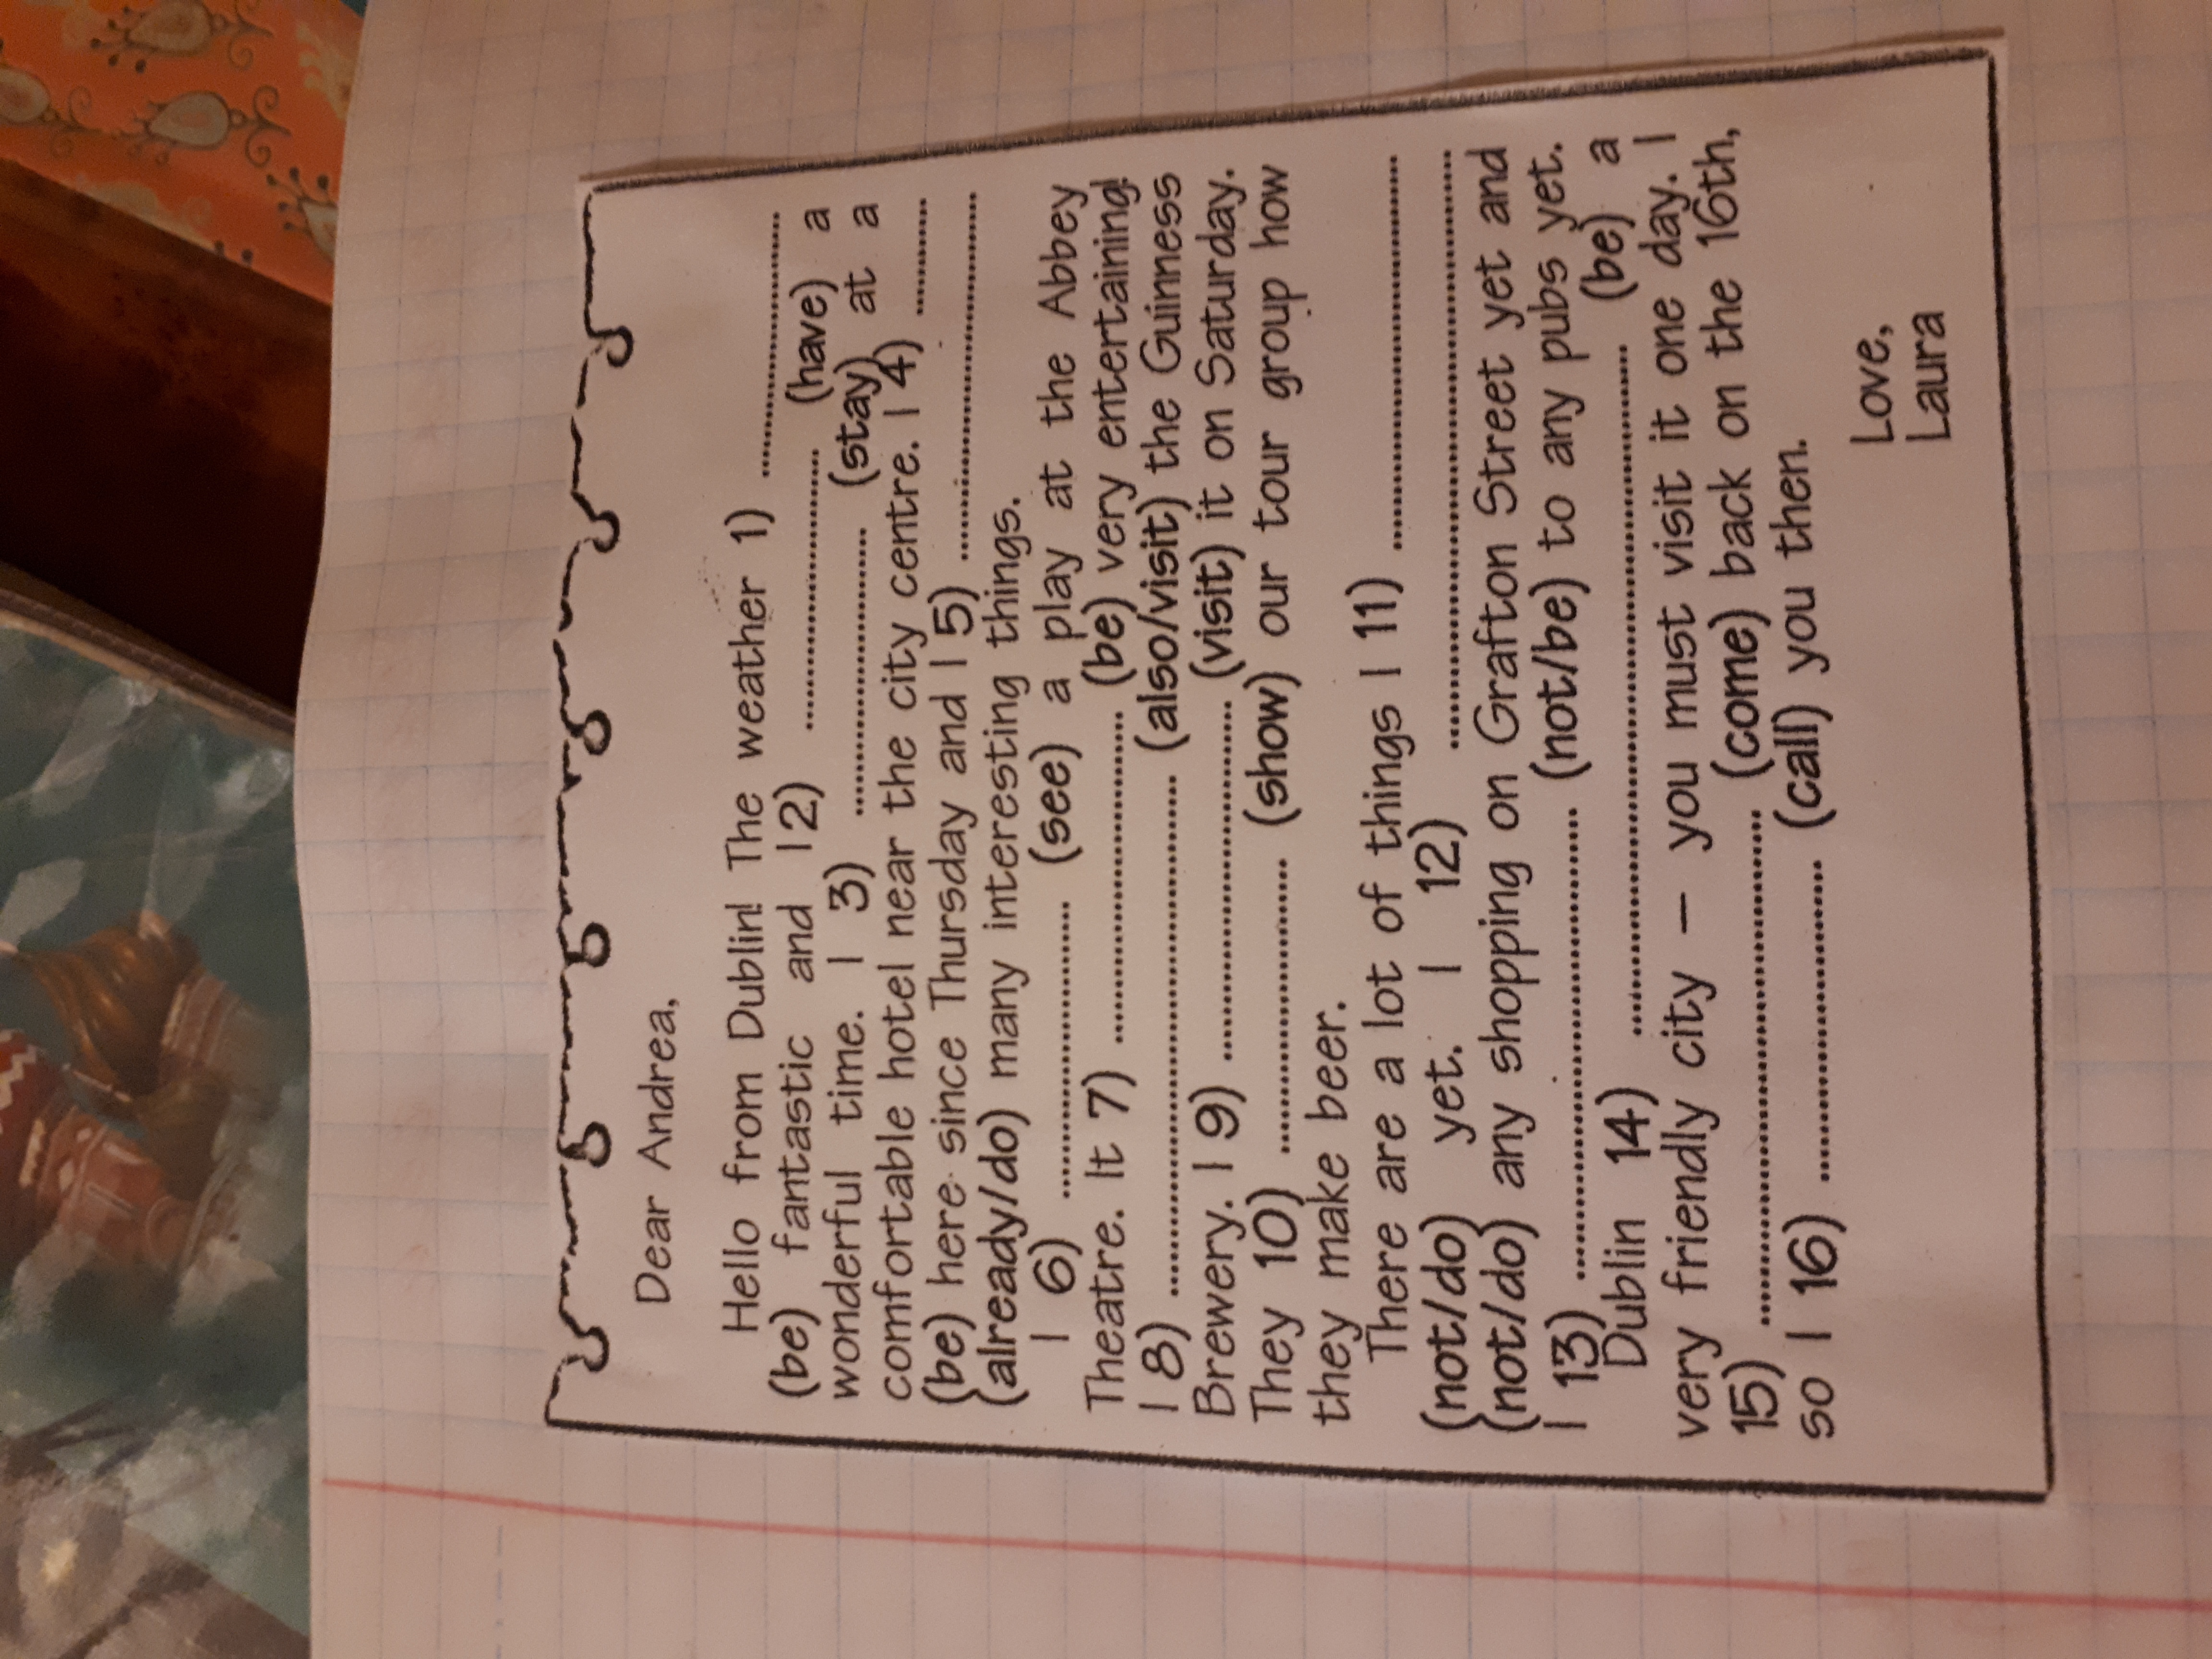 Dear Andrea,
Hello from Dublin! The weather 1) ..............................
(be) fantastic and I 2) .............................. (have) a
wonderful time. I 3) .............................. (stay) at a
comfortable hotel near the city centre. I 4) ............
(be) here since Thursday and I 5) ........................................
(already/do) many interesting things.
I 6) .............................. (see) a play at the Abbey
Theatre. It 7) .............................. (be) very entertaining!
I 8) .................................................. (also/visit) the Guinness
Brewery. I 9) .................................... (visit) it on Saturday.
They 10) .............................. (show) our tour group how
they make beer.
There are a lot of things I 11) ........................................
(not/do) yet. I 12) ............................................................
(not/do) any shopping on Grafton Street yet and
I 13) .............................................. (not/be) to any pubs yet.
Dublin 14) ...................................................................... (be) a
very friendly city – you must visit it one day. I
15) .................................................. (come) back on the 16th,
so I 16) .............................. (call) you then.
Love,
Laura